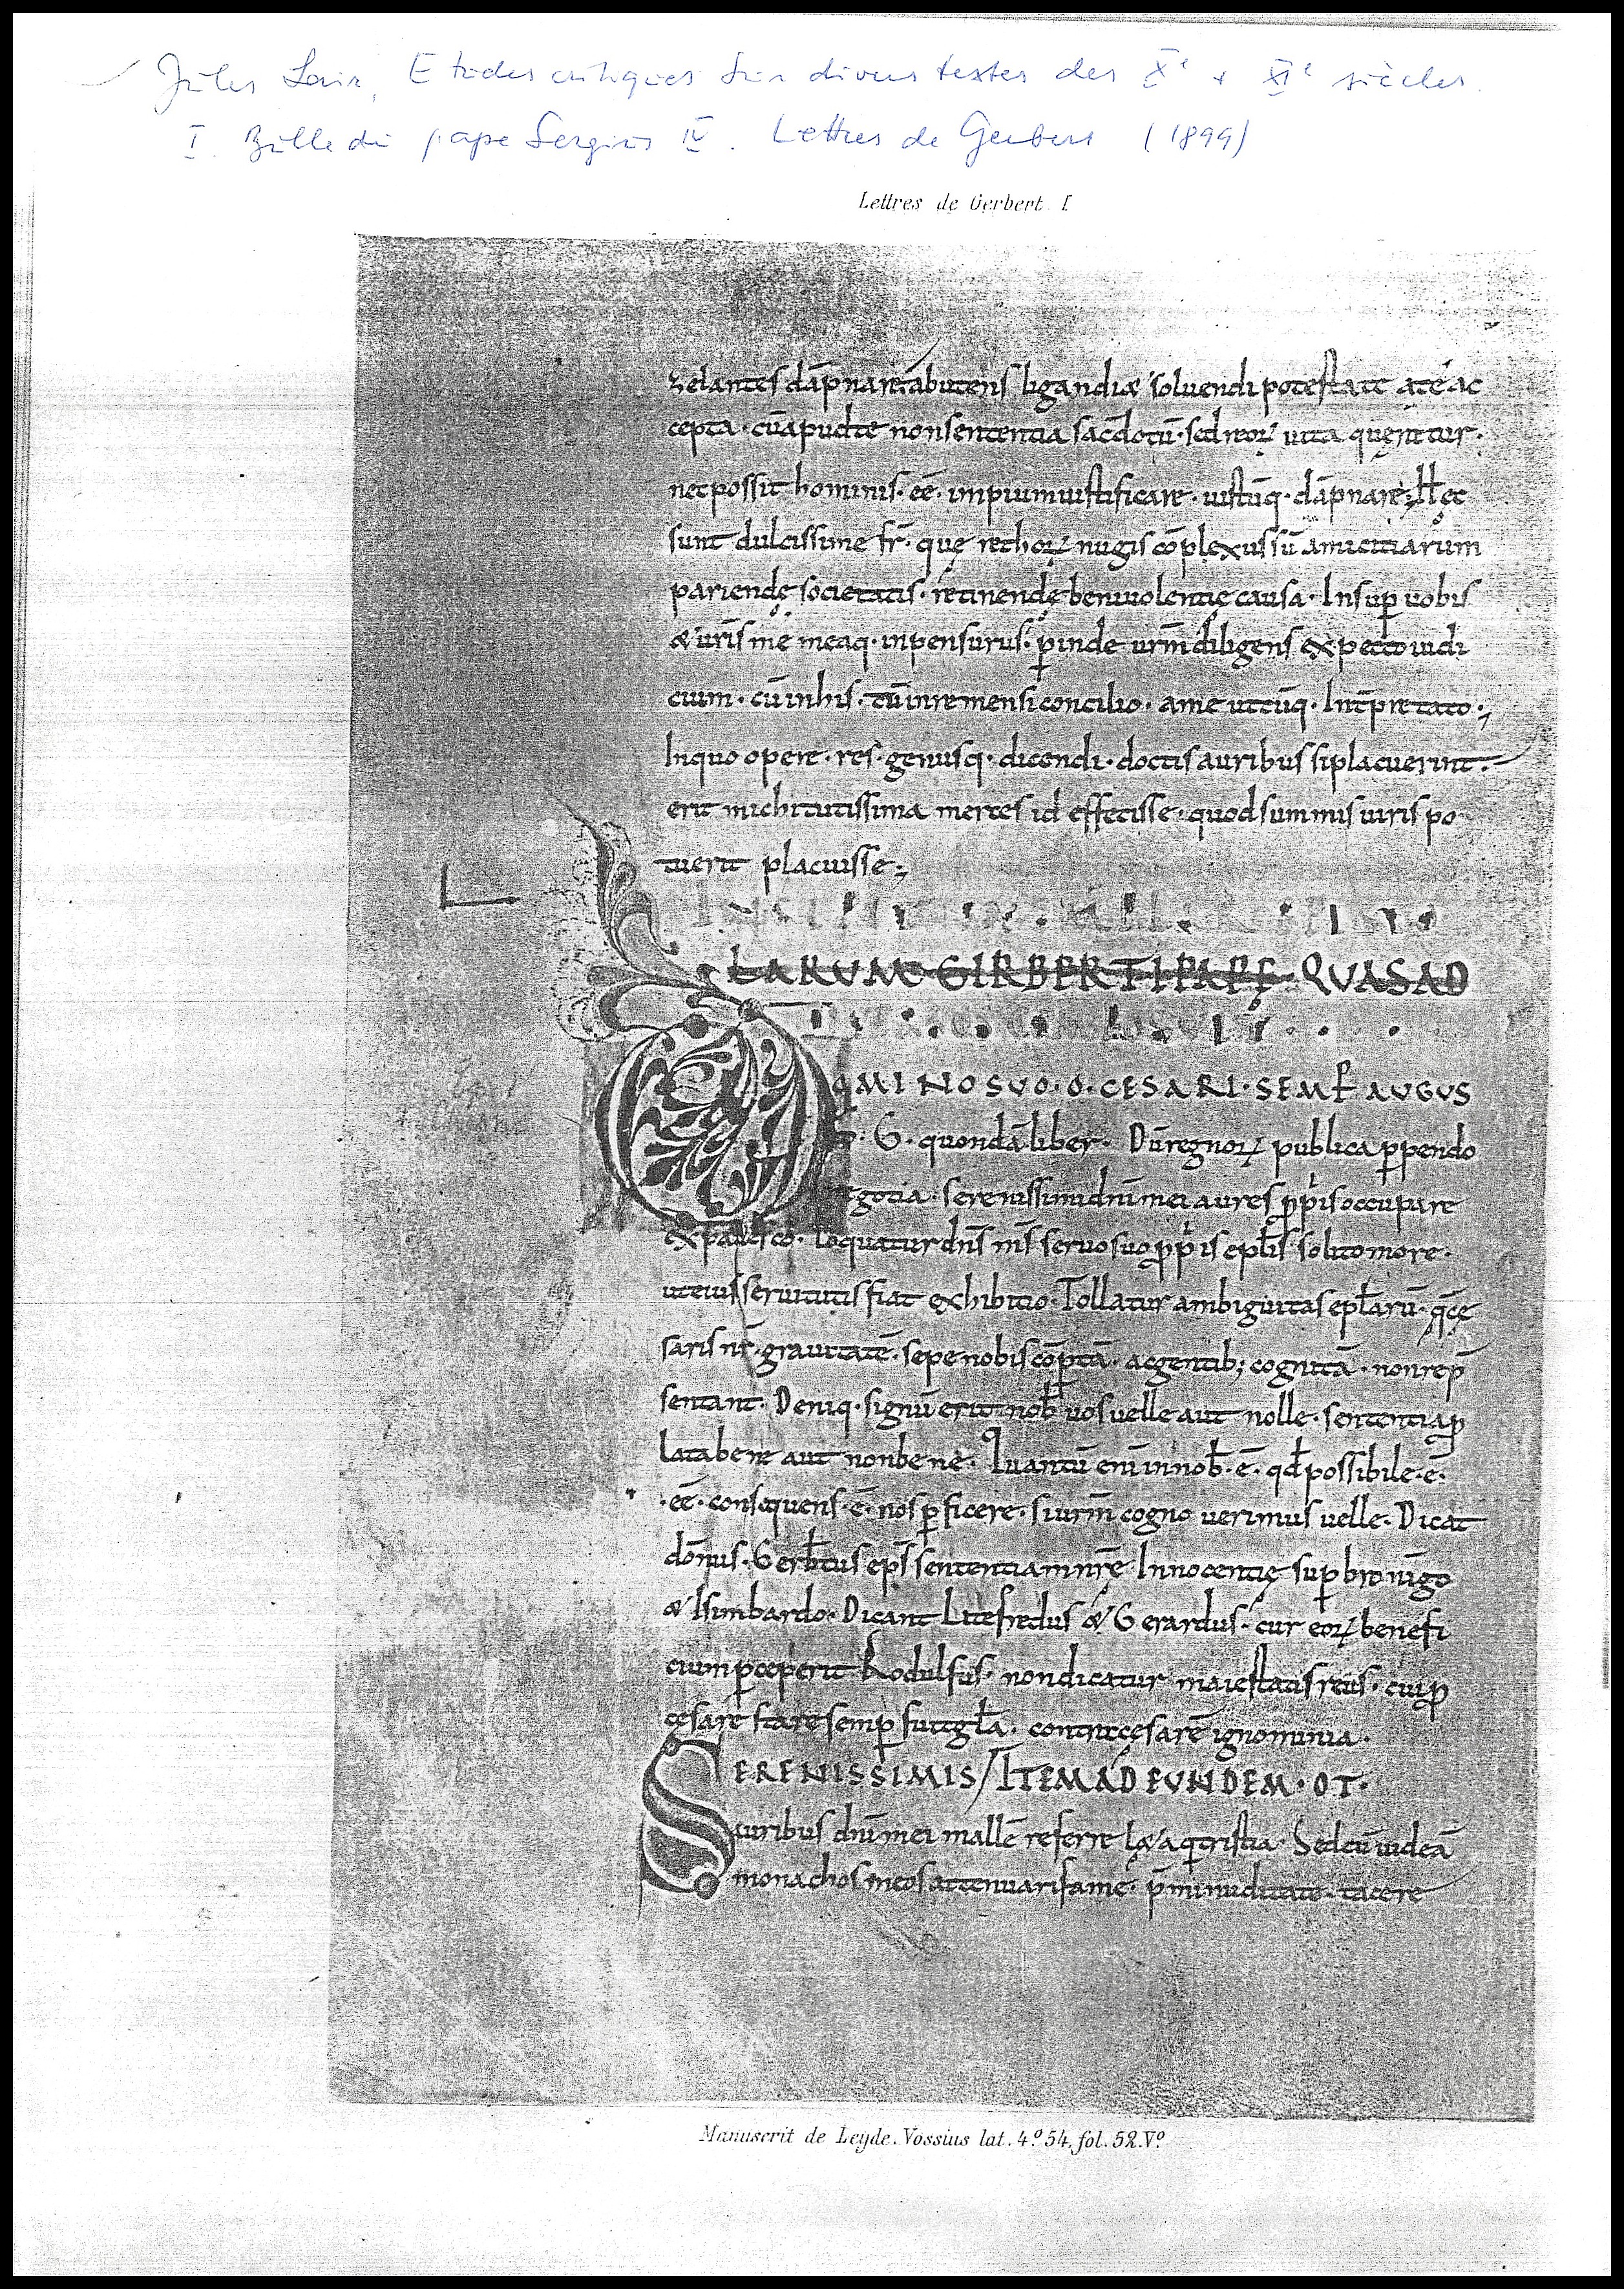 Jules Lair, Etudes critiques sur divers textes des Xᵉ et XIᵉ siècles.
I. Bulle du pape Sergius IV. Lettres de Gerbert (1899)
Lettres de Gerbert. I
zelantes dāpnaret abutens ligandi & soluendi potestate a te ac
cepta · cū apud te non sententia sacdotū · sed reoꝝ uita querretur ·
nec possit hominis · eē · impium iustificare · iustūq · dāpnare ; Hęc
sunt dulcissime fr̄ · quę rethoꝝ nugis cōplexus sū amicitiarum
pariendę societatis · retinendę beniuolentię causa · Insuꝑ uobis
& uris me meaq · inpensurus · ꝑinde urm̄ diligens expecto iudi
cium · cū in his · tū in remensi concilio · a me utcūq · Int̄pretato ·;
In quo opere · res · genusq · dicendi · doctis auribus si placuerint ·
erit michi tutissima merces id effecisse · quod summis uiris po
tuerit placuisse ;
LARUM GIRBERTI PAPĘ QUAS AD
OMINO SUO · O · CESARI · SEMP AUGUS
· G · quondā liber · Dū regnoꝝ publica ꝑpendo
egotia · serenissimi dnī mei aures ꝓpriis occupare
expauesco · Loquatur dns̄ ms̄ seruo suo ꝓpriis eplis solito more ·
ut eius seruitutis fiat exhibitio · Tollatur ambiguitas eplarū · q̄ cę
saris nr̄i · grauitatē · sepe nobis cōptā · ac gentib; cognitā · non rep̄
sentant · Deniq · signū erit nob uos uelle aut nolle · sententia ꝓ
lata bene aut non bene · Quantū eni in nob · ē · qd possibile · ē ·
· eē · consequens · ē · nos ꝑficere · si urm̄ cognouerimus uelle · Dicat
dōnus · Gerbtus eps̄ sententiam nrē Innocentię suꝑ bronīgo
& Isimbardo · Dicant Litefredus & Gerardus · cur eoꝝ benefi
cium ꝑceperit Rodulfus · non dicatur maiestatis reus · cui ꝓ
cesare stare semꝑ fuit gla · contra cesarē ignominia ·
SERENISSIMIS / ITEM AD EUNDEM · OT ·
auribus dnī mei mallē referre lęta q̄ tristia · Sed cū uideā
monachos meos attenuari fame · p̄mi nuditate · tacere
Manuscrit de Leyde. Vossius lat. 4.º 54, fol. 52. Vº